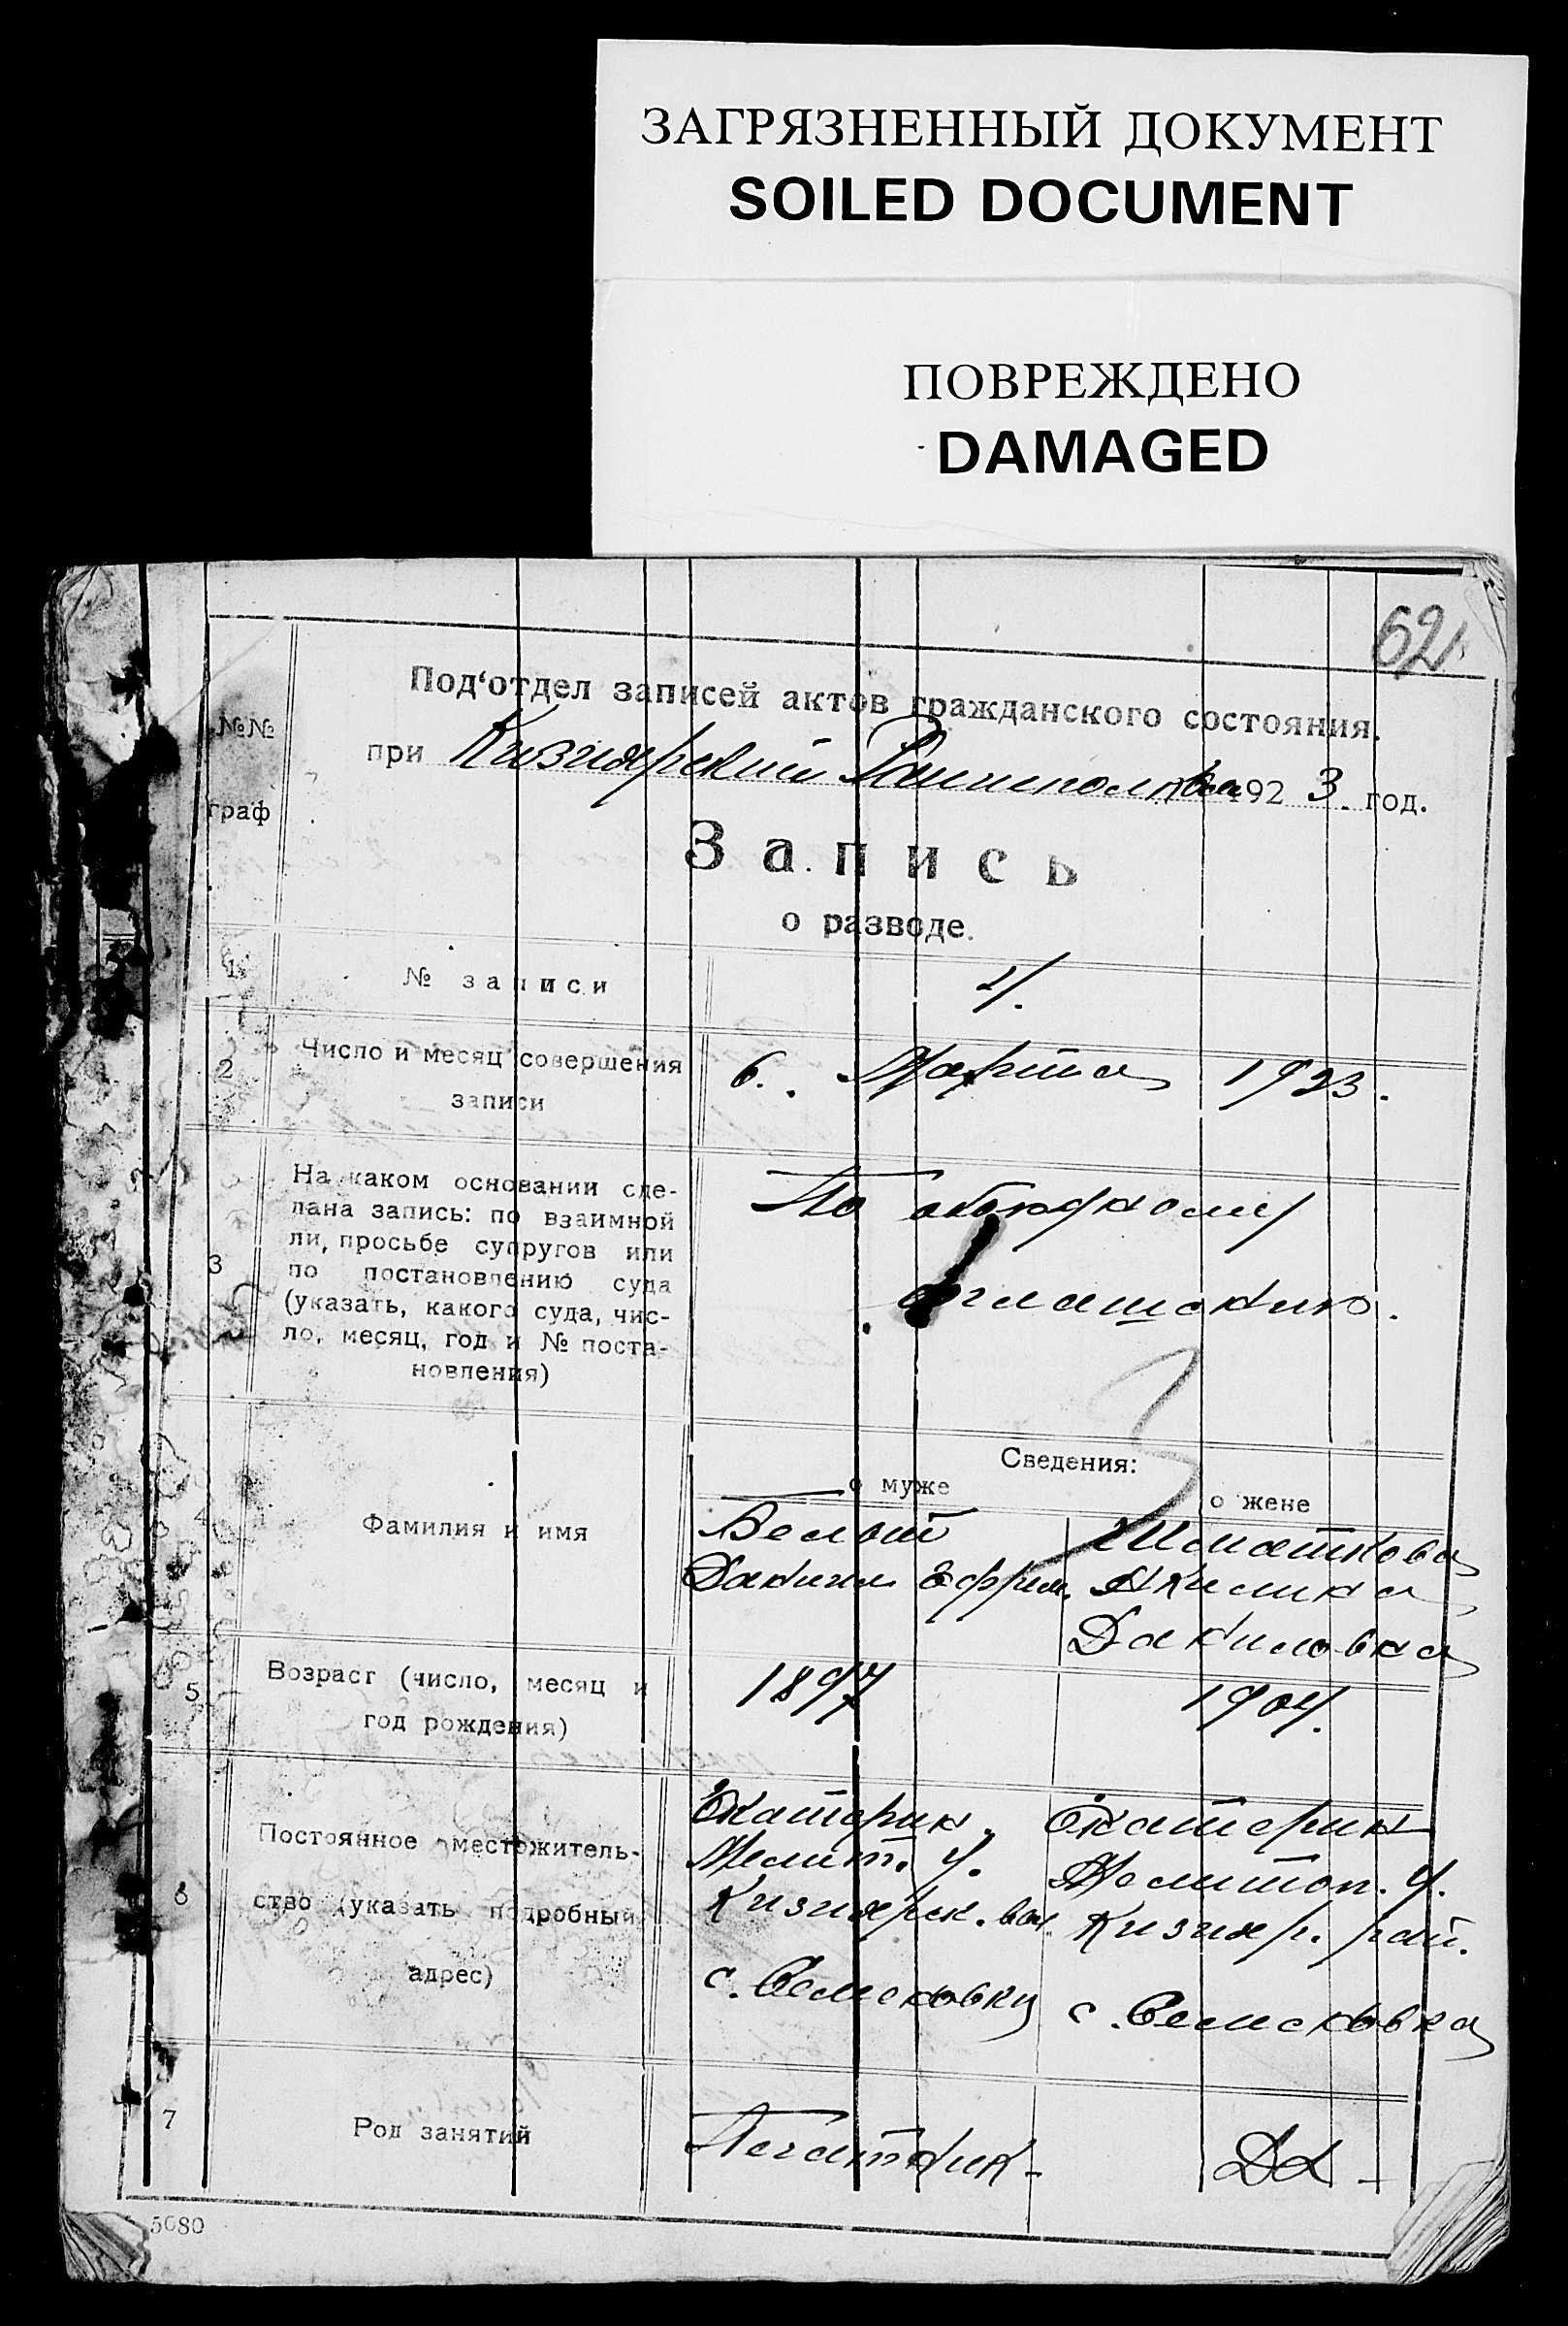 ЗАГРЯЗНЕННЫЙ ДОКУМЕНТ
SOILED DOCUMENT
ПОВРЕЖДЕНО
DAMAGED
62
Под‘отдел записей актов гражданского состояния.
№№ граф
при Кизиярский 1923. год.
Запись
о разводе.
1 № записи 4.
2 Число и месяц совершения 6. Марта 1923.
записи
На каком основании сде-
лана запись: по взаимной По обоюдному
ли, просьбе супругов или
3 по постановлению суда
(указать, какого суда, чис- соглашению.
ло, месяц, год и № поста-
новления)
Сведения:
о муже о жене
4 Фамилия и имя Белый Шматкова
Данил Ефрем. Акилина
Даниловна
5 Возраст (число, месяц и 1897 1904.
год рождения)
Екатерин. Екатерин
Постоянное местожитель- Мелит. у. Мелитоп. у.
6 ство (указать подробный Кизиярск. вол. Кизияр. рай.
адрес) с. с.
7 Род занятий
5080